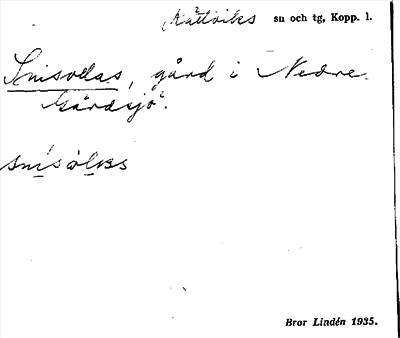 Rättviks sn och tg, Kopp. l.
Snisollas, gård i Nedre
Gärdsjö.
Bror Lindén 1935.